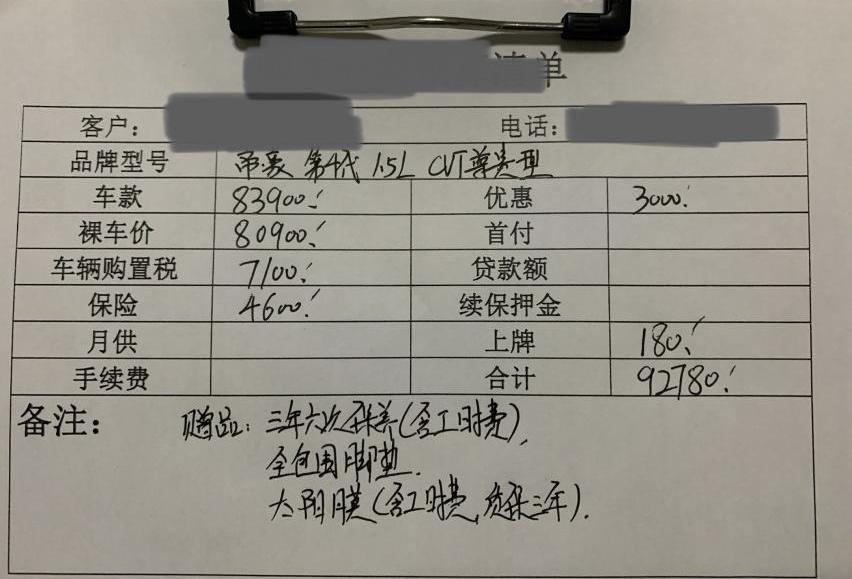 清单
客户： 电话：
品牌型号 帝豪 第4代 1.5L CVT尊贵型
车款 83900. 优惠 3000.
裸车价 80900. 首付
车辆购置税 7100. 贷款额
保险 4600. 续保押金
月供 上牌 180.
手续费 合计 92780.
备注： 赠品：三年六次保养(含工时费),
全包围脚垫.
太阳膜(含工时费,质保三年).